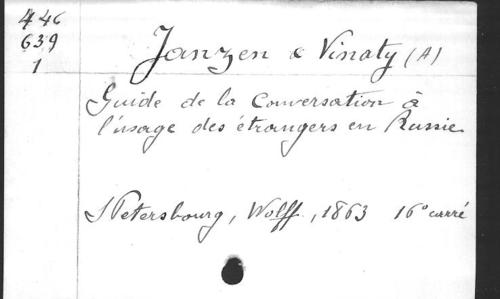 446
639
1
Janzen & Vinaty (A)
Guide de la Conversation à
l'usage des étrangers en Russie
St Petersbourg, Wolff, 1863 16° carré